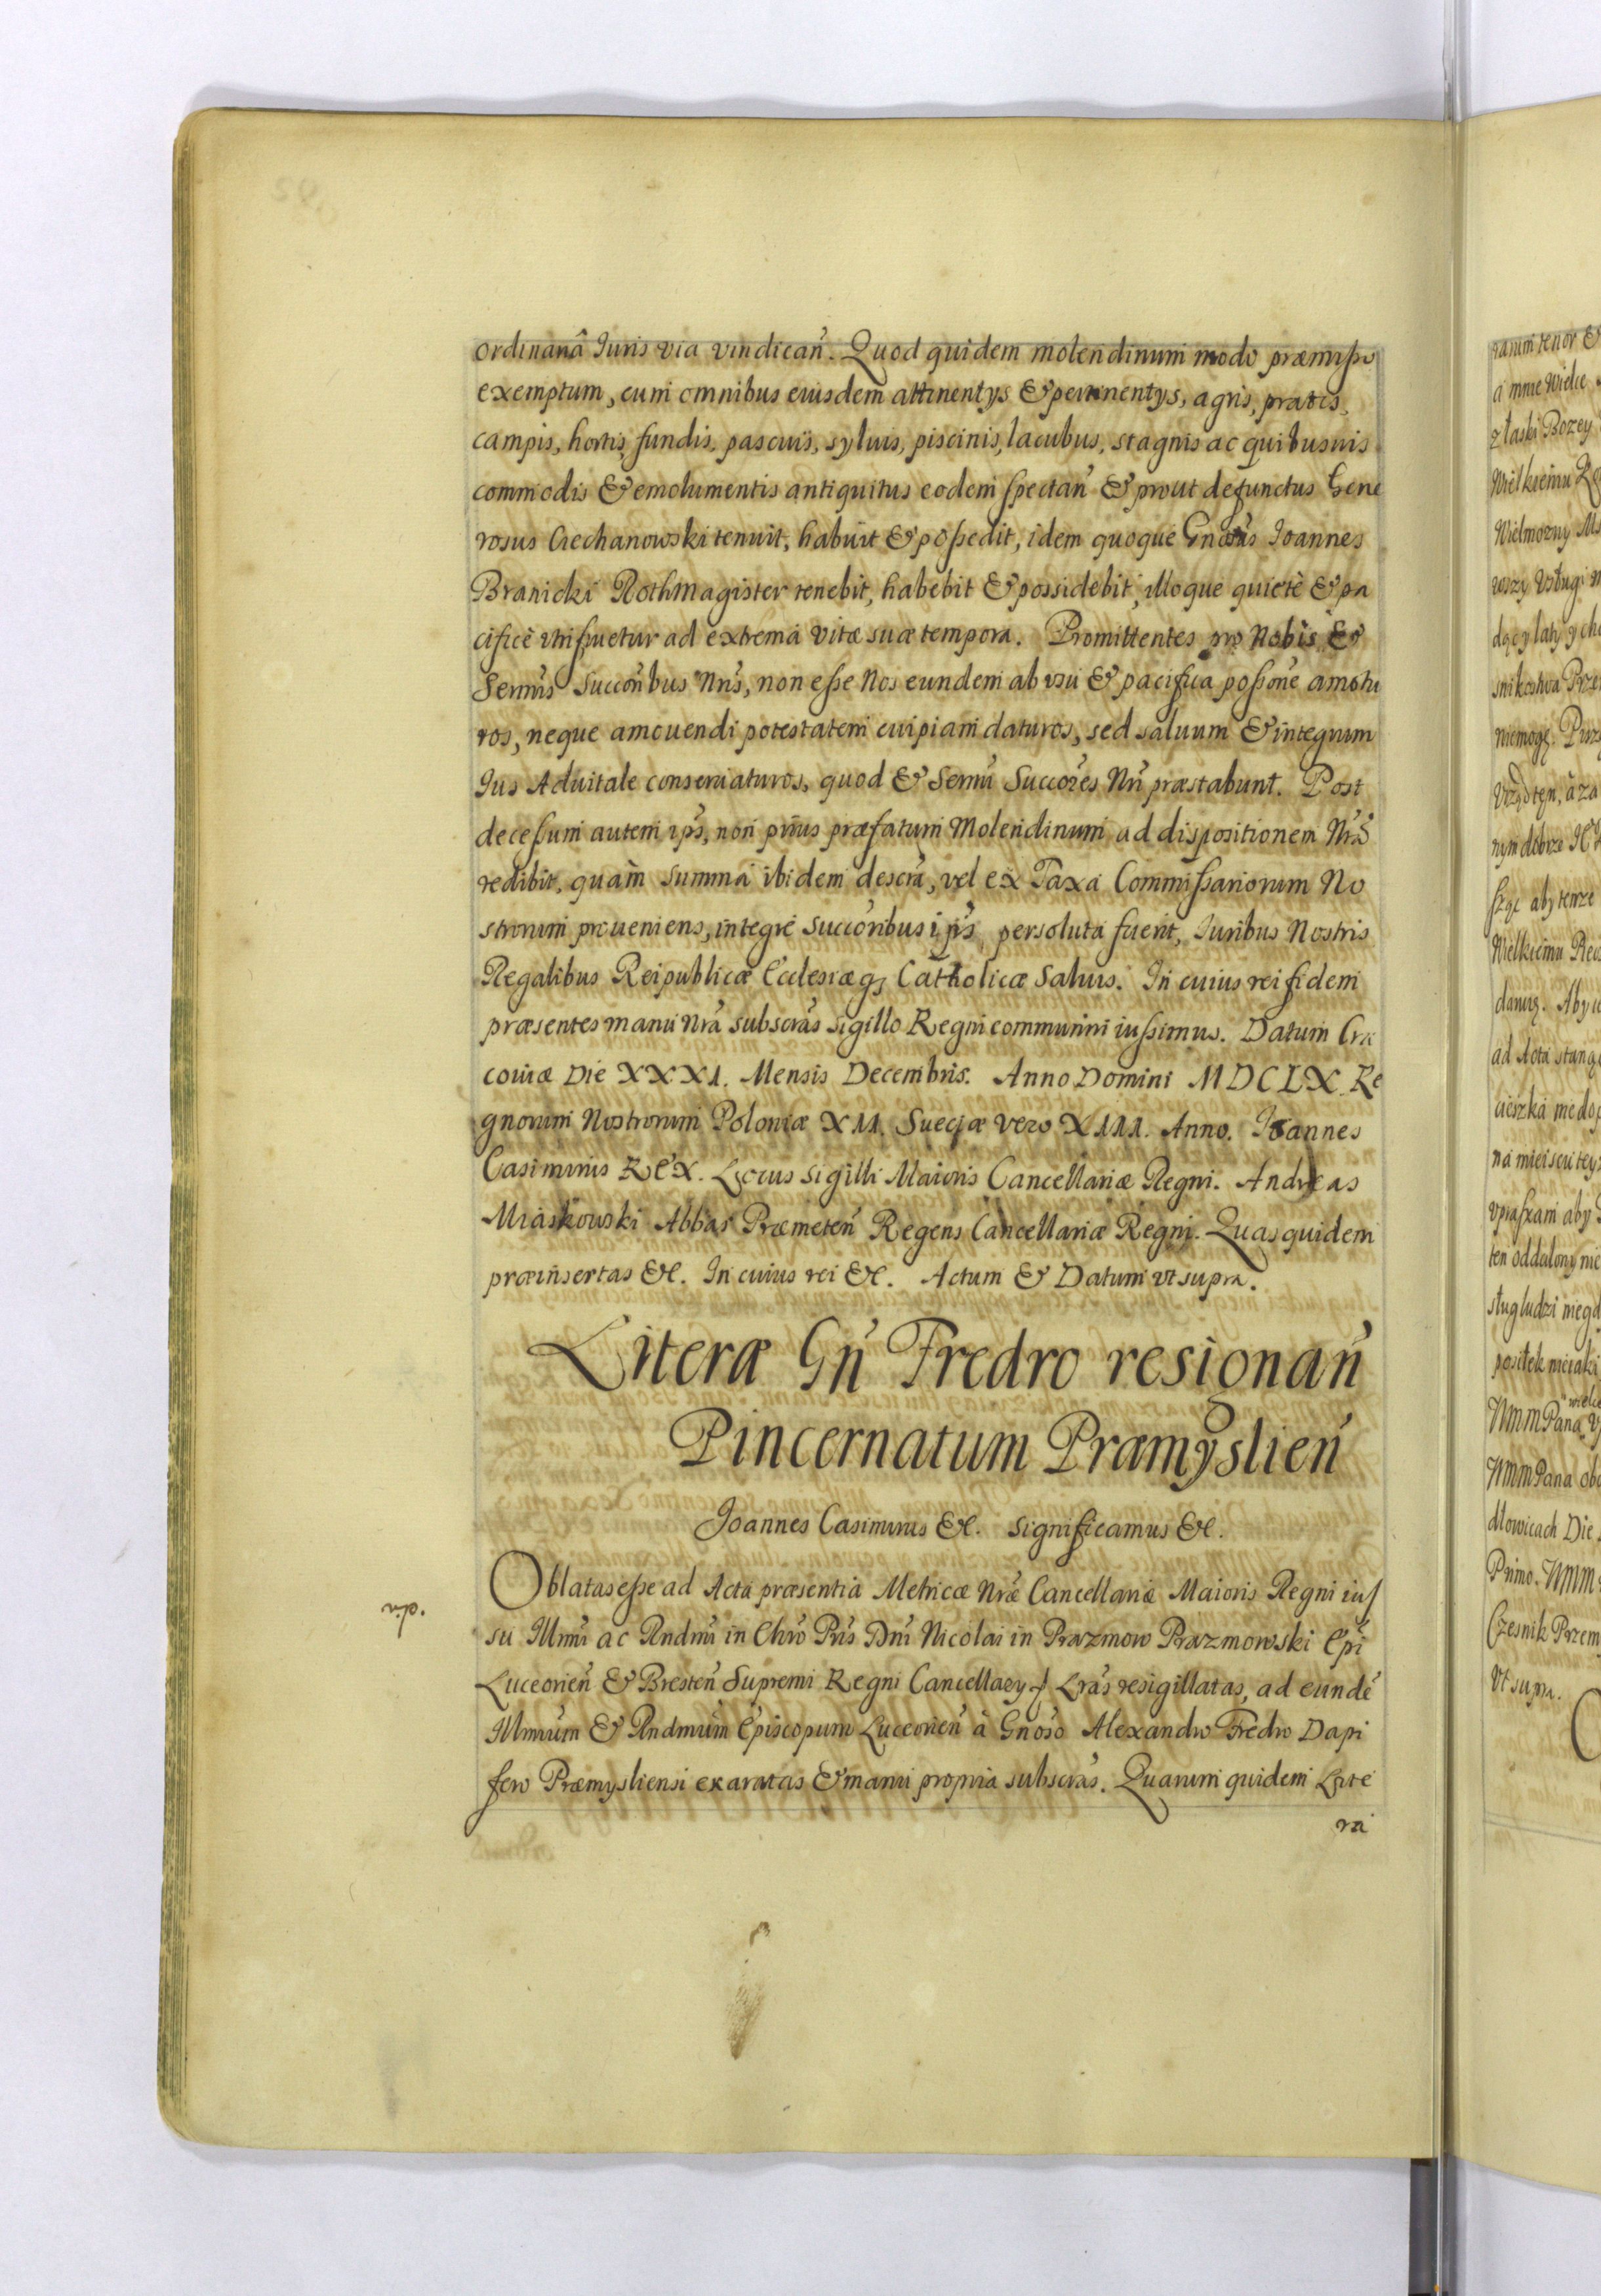 ordinariâ Iuris via vindican̄. Quod quidem molendinum modo præmisso
exemptum, cum omnibus eiusdem attinentys & pertinentys, agris, pratis,
campis, hortis, fundis, pascuis, syluis, piscinis, lacubus, stagnis ac quibusuis
commodis & emolumentis antiquitus eodem spectan̄ & prout defunctus Gene
rosus Ciechanowski tenuit, habuit & possedit, idem quoque Gnosus Ioannes
Branicki Rothmagister tenebit, habebit & possidebit, illoque quietè & pa
cificè utifruetur ad extrema vitæ suæ tempora. Promittentes pro Nobis &
Sermis Succoribus Nris, non esse Nos eundem ab usu & pacifica possone amotu
ros, neque amouendi potestatem cuipiam daturos, sed saluum & integrum
Ius Aduitale conseruaturos, quod & Sermi Succores Nri præstabunt. Post
decessum autem ipsius, non prius præfatum Molendinum ad dispositionem Nram
redibit, quàm summa ibidem descra, vel ex Taxa Commissariorum No
strorum proueniens, integrè succoribus ipsis persoluta fuerit, Iuribus Nostris
Regalibus Reipublicæ Ecclesiæq; Catholicæ saluis. In cuius rei fidem
præsentes manu Nrā subscrās sigillo Regni communiri iussimus. Datum Cra
couiæ Die XXXI. Mensis Decembris. Anno Domini MDCLX. Re
gnorum Nostrorum Poloniæ XII. Sueciæ vero XIII. Anno. Ioannes
Casimirus REX. Locus sigilli Maioris Cancellariæ Regni. Andreas
Miaskowski Abbas Præmeten̄ Regens Cancellariæ Regni. Quas quidem
præinsertas &c. In cuius rei &c. Actum & Datum vt supra.
Literæ Gn̄ Fredro resignan̄
Pincernatum Præmyslien̄
Ioannes Casimirus &c. Significamus &c.
Oblatas esse ad Acta præsentia Metricæ Nræ Cancellariæ Maioris Regni ius
su Illmi ac Rndmi in Chro Pris Dni Nicolai in Prazmow Prazmowski Epi
Luceorien̄ & Bresten̄ Supremi Regni Cancellary Lrās resigillatas, ad eundē
Illmum & Rndmum Episcopum Luceorien̄ à Gnoso Alexandro Fredro Dapi
fero Præmysliensi exaratas & manu propria subscrās. Quarum quidem Lite
ra